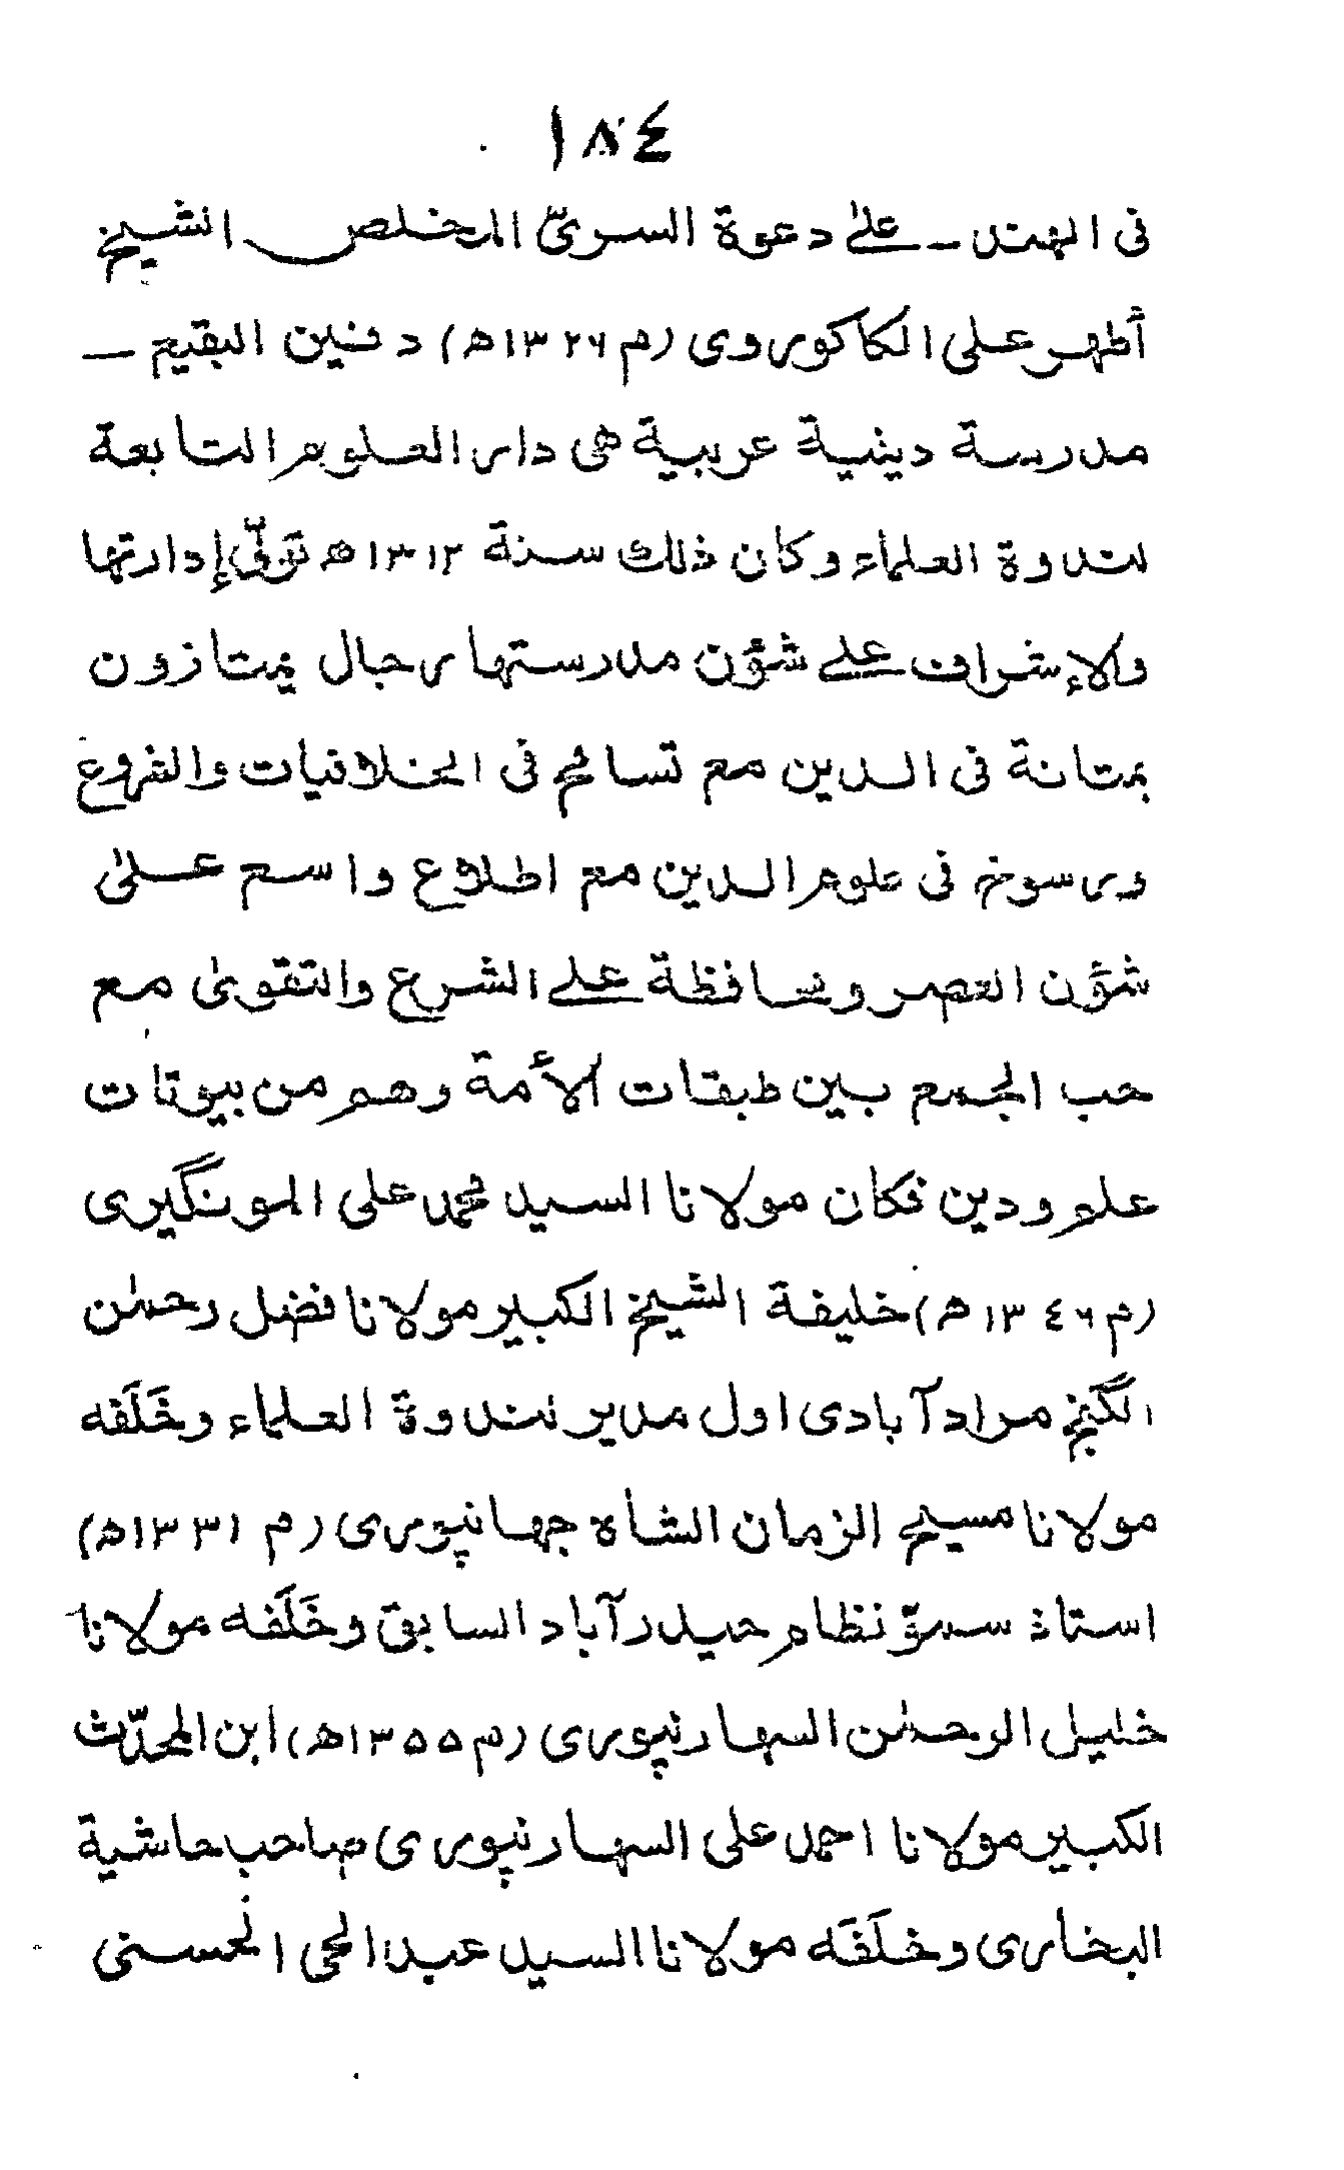 ١٨٤
فى الهند ــ علىٰ دعوة السرىّ المخلص الشيخ
أطهر على الكاكوروى (م ١٣٢٦ھ) دفين البقيع ــ
مدرسة دينية عربية هى دار العلوم التابعة
لندوة العلماء وكان ذلك سنة ١٣١٢ھ تَولّىٰ إدارتها
والإشراف على شؤن مدرستها رجال يمتازون
بمتانة فى الدين مع تسامح فى الخلافيات والفروع
ورسوخ فى علوم الدين مع اطلاع واسع علىٰ
شؤن العصر ومحافظة على الشرع والتقوىٰ مع
حب الجمع بين طبقات الأمة وهم من بيوتات
علم ودين فكان مولانا السيد محمد على المونگيرى
(م ١٣٤٦ھ) خليفة الشيخ الكبير مولانا فضل رحمٰن
الگنج مرادآبادى اول مدير لندوة العلماء وخَلَفه
مولانا مسيح الزمان الشاه جهانپورى (م ١٣٣١ھ)
استاذ سموّ نظام حيدرآباد السابق وخَلَفه مولانا
خليل الرحمٰن السهارنپورى (م ١٣٥٥ھ) ابن المحدّث
الكبير مولانا احمد على السهارنپورى صاحب حاشية
البخارى وخلَفَه مولانا السيد عبد الحى الحسنى